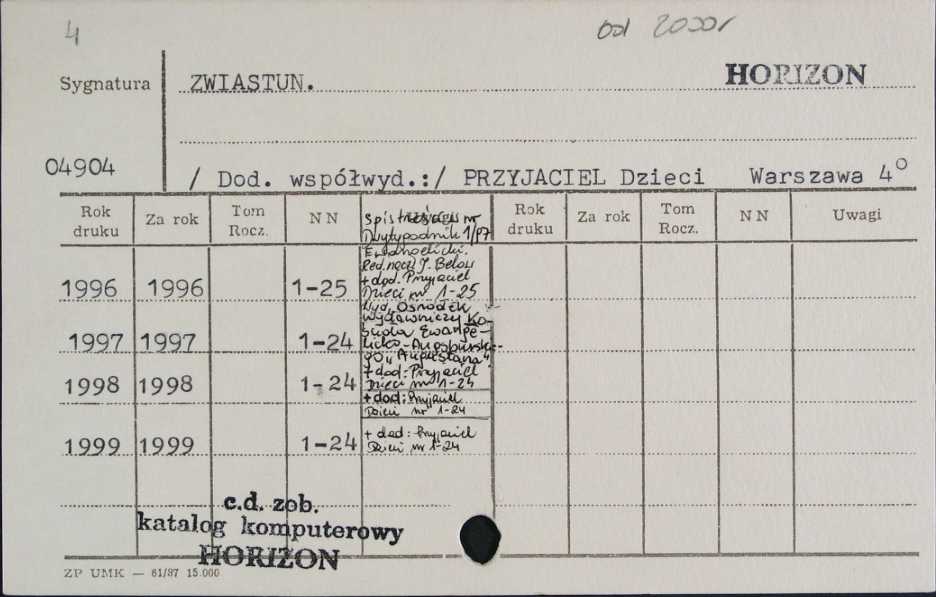 4
od 2000r
Sygnatura
ZWIASTUN.
HORIZON
04904
/ Dod. współwyd.:/ PRZYJACIEL Dzieci Warszawa 4°
Rok druku Za rok Tom Rocz. N N Rok druku Za rok Tom Rocz. N N Uwagi
Spis treści nr
Dwutygodnik 1/97
Ewangelicki.
Red. nacz. J. Below
+ dod. Przyjaciel
1996 1996 1-25 Dzieci nr 1-25
Wyd. Ośrodek
Wydawniczy Ko-
ścioła Ewange-
1997 1997 1-24 licko-Augsburskie-
go "Augustana"
+ dod: Przyjaciel
1998 1998 1-24 Dzieci nr 1-24
+ dod: Przyjaciel
Dzieci nr 1-24
+ dod: Przyjaciel
1999 1999 1-24 Dzieci nr 1-24
c.d. zob.
katalog komputerowy
HORIZON
ZP UMK — 61/87 15.000